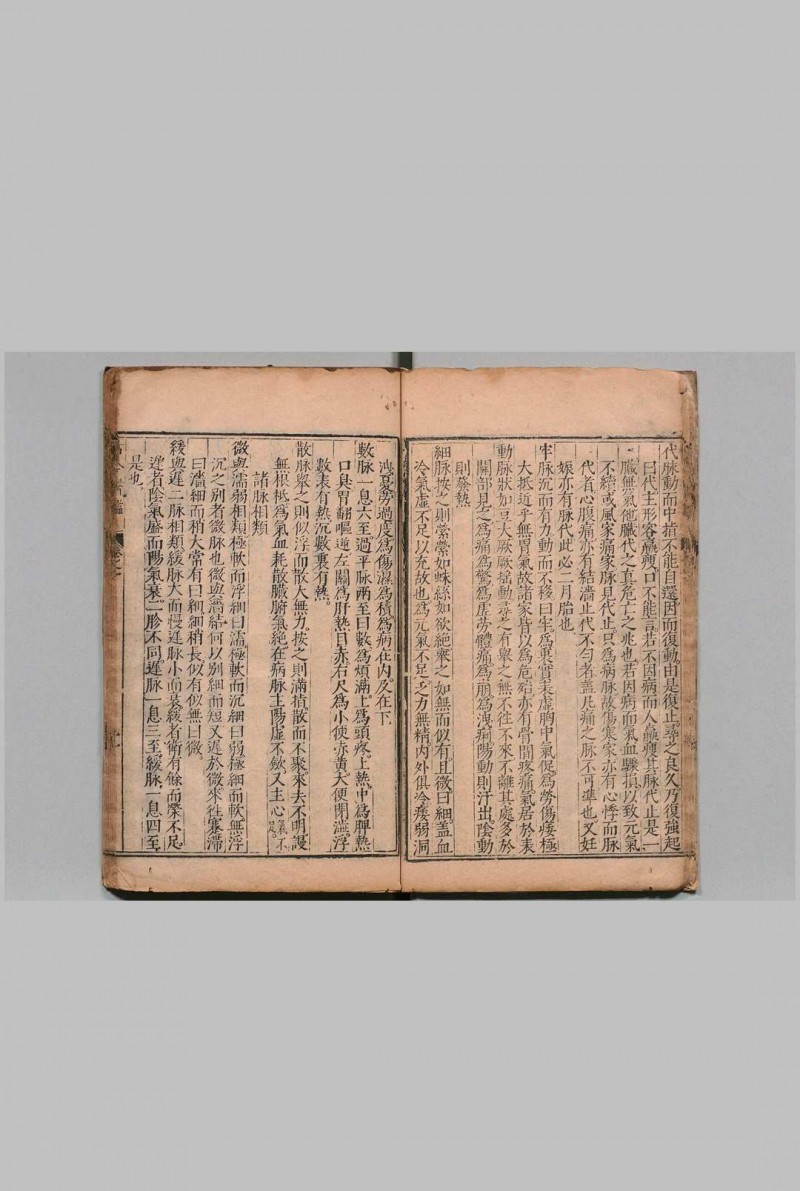 代脉動而中指不能自還因而復動由是復止尋之良久乃復強起
曰代主形容羸瘦口不能言若不因病而人羸瘦其脉代止是一
臟無氣他臟代之真危亡之兆也若因病而氣血驟損以致元氣
不續或風家痛家脉見代止只為病脉故傷寒家亦有心悸而脉
代者心腹痛亦有結濇止代不勻者蓋凡痛之脉不可凖也又妊
娠亦有脉代此必二月胎也
牢脉沉而有力動而不移曰牢為裏實表虛胸中氣促為勞傷痿極
大抵近乎無胃氣故諸家皆以為危殆亦有骨間疼痛氣居於表
動脉狀如豆大厥厥揺動尋之有舉之無不往不來不離其處多於
關部見之為痛為驚為虛勞體痛為崩為洩痢陽動則汗出陰動
則發熱
細脉按之則縈縈如蛛絲如欲絕舉之如無而似有且微曰細蓋血
冷氣虛不足以充故也為元氣不足乏力無精內外俱冷痿弱洞
洩為憂勞過度為傷濕為積為痛在內及在下
數脉一息六至過平脉兩至曰數為煩滿上為頭疼上熱中為脾熱
口臭胃翻嘔逆左關為肝熱目赤右尺為小便赤黃大便閉澁浮
數表有熱沉數裏有熱
散脉舉之則似浮而散大無力按之則滿指散而不聚來去不明謾
無根柢為氣血耗散臟腑氣絕在病脉主陽虛不歛又主心氣不足
諸脉相類
微與濡弱相類極軟而浮細曰濡極軟而沉細曰弱極細而軟無浮
沉之別者微脉也微與濇結何以別細而短又遲於微來往蹇滯
曰濇細而稍大常有曰細細稍長似有似無曰微
緩與遲二脉相類緩脉大而慢遲脉小而衰緩者衛有餘而榮不足
遲者陰氣盛而陽氣衰二脉不同遲脉一息三至緩脉一息四至
是也